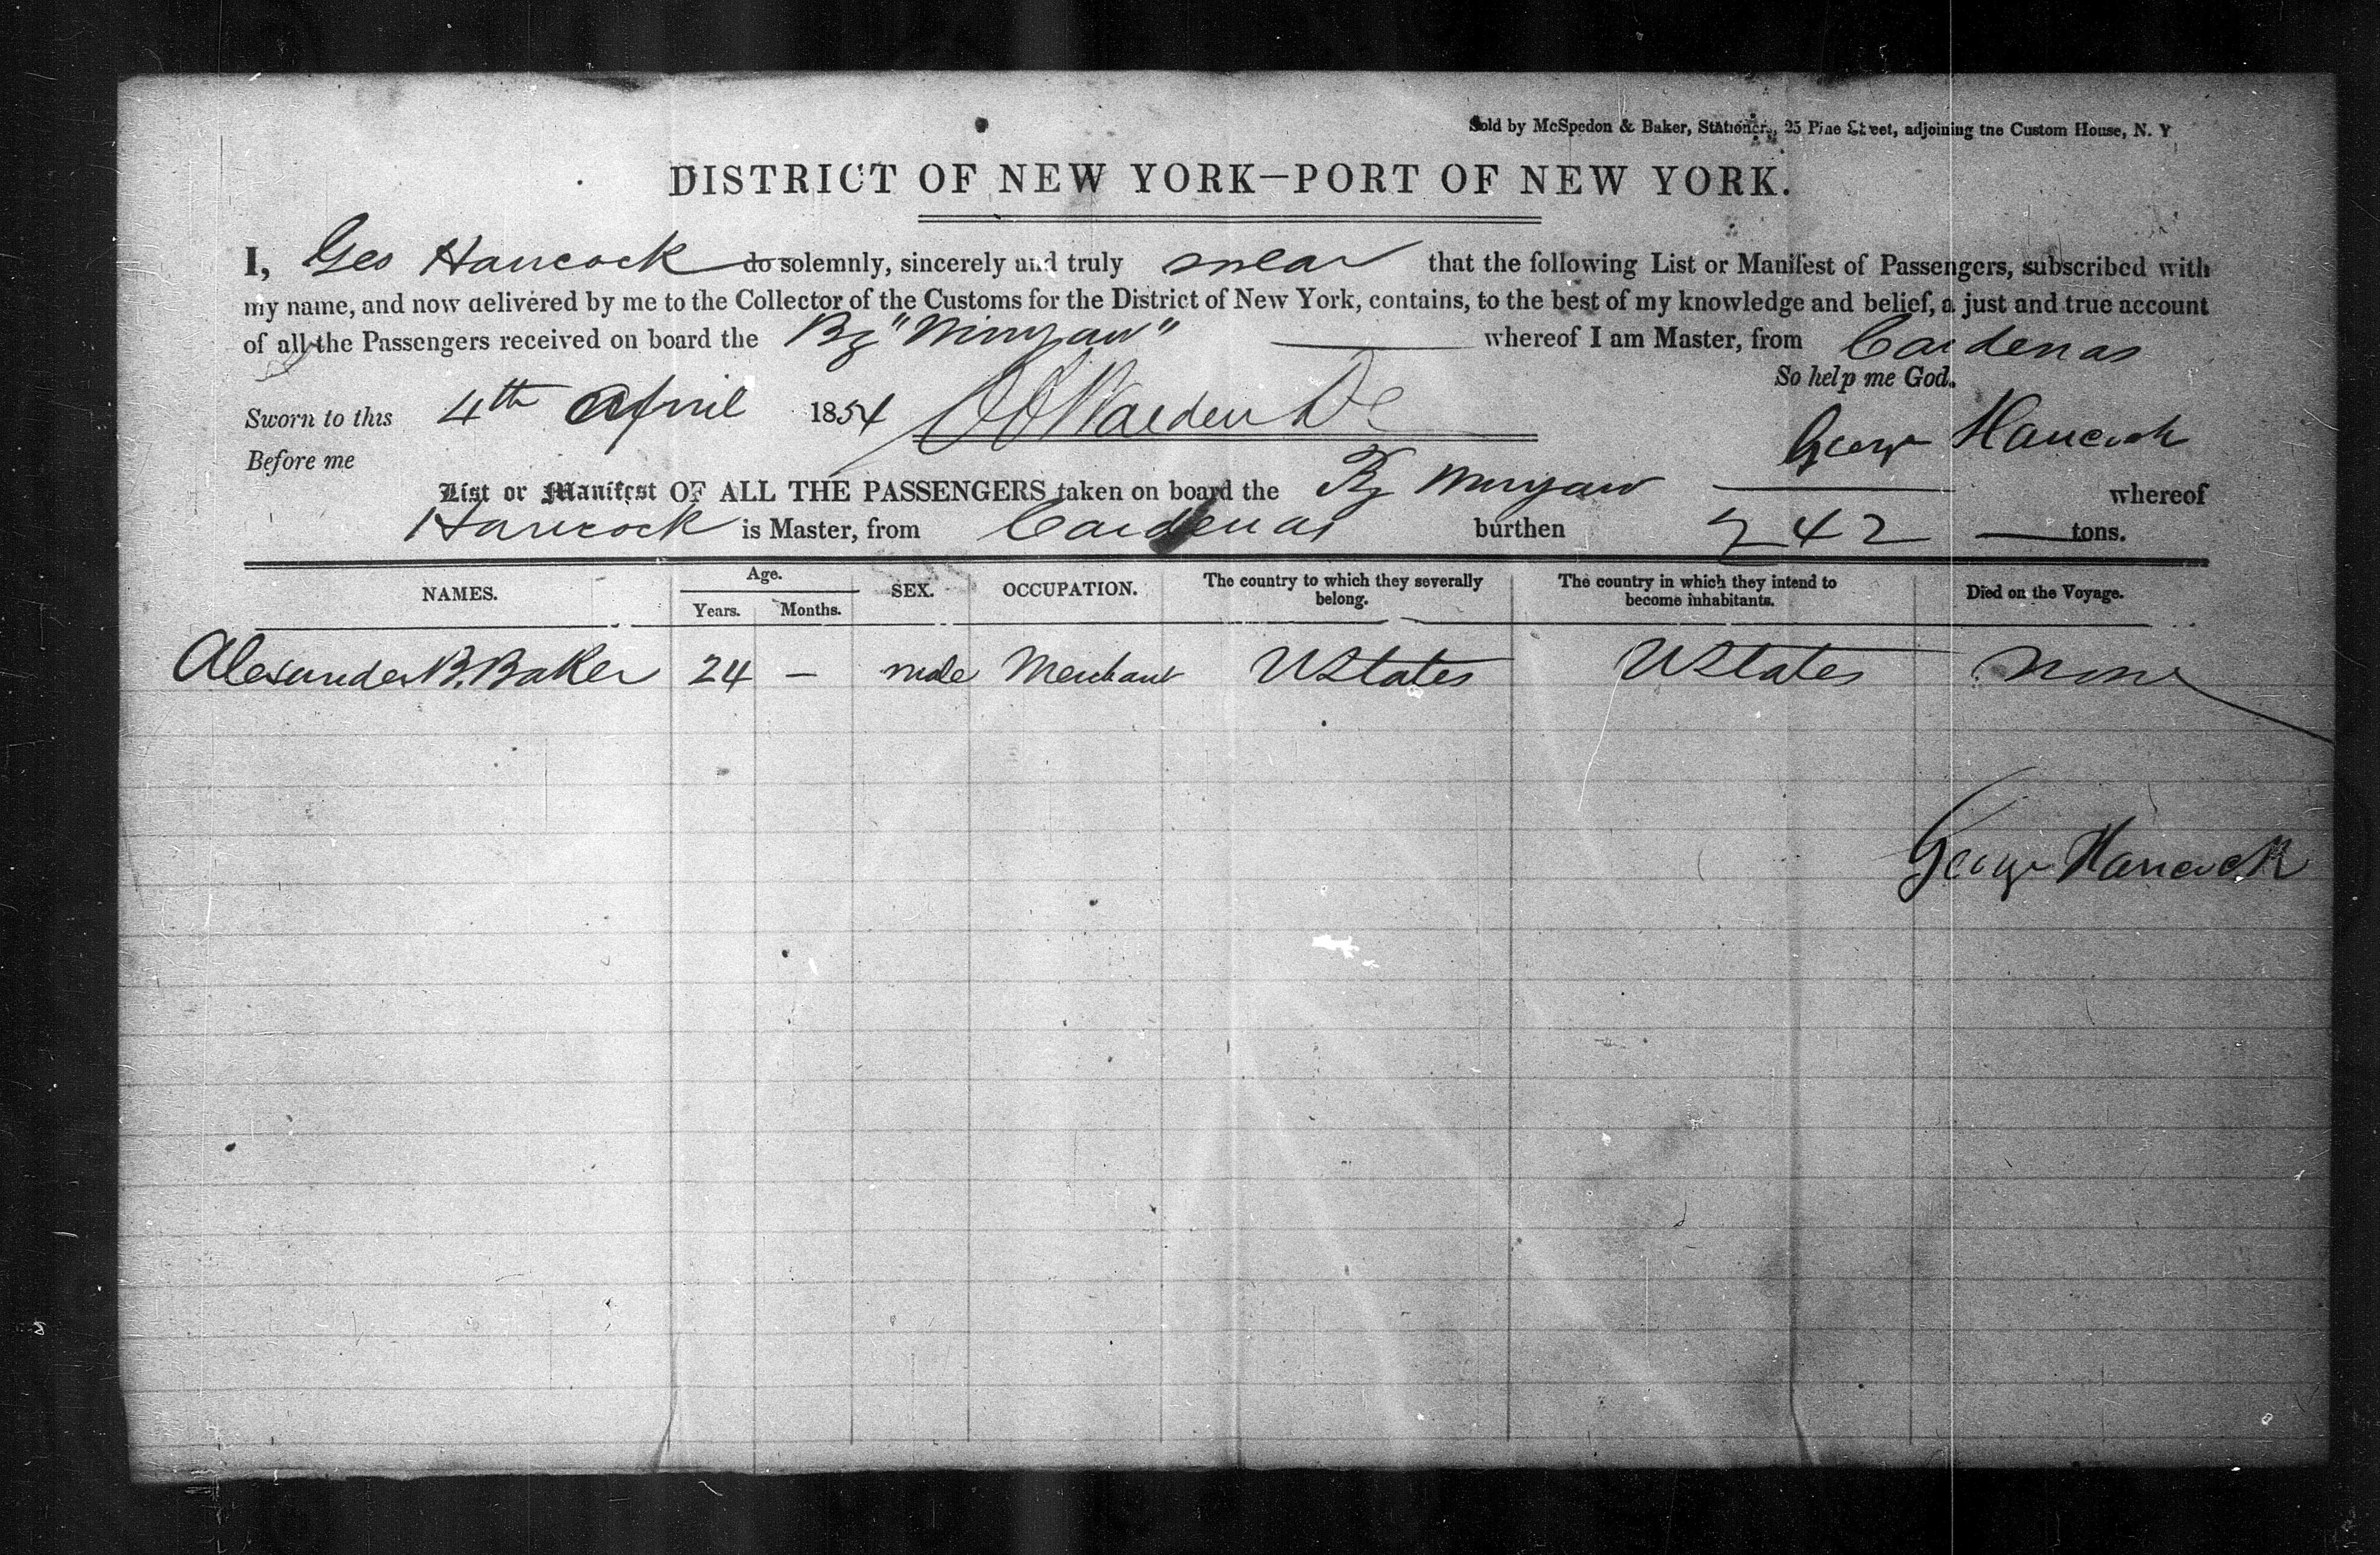 Sold by McSpedon & Baker, Stationers, 25 Pine Street, adjoining the Custom House, N. Y
DISTRICT OF NEW YORK—PORT OF NEW YORK.
I, Geo Hancock do solemnly, sincerely and truly swear that the following List or Manifest of Passengers, subscribed with
my name, and now delivered by me to the Collector of the Customs for the District of New York, contains, to the best of my knowledge and belief, a just and true account
of all the Passengers received on board the Bg whereof I am Master, from Cardenas
So help me God.
Sworn to this 4th April 1854
George Hancock
Before me
List or Manifest OF ALL THE PASSENGERS taken on board the Bg whereof
Hancock is Master, from Cardenas burthen 242 tons.
NAMES. Age. Years. Months. SEX. OCCUPATION. The country to which they severally belong. The country in which they intend to become inhabitants. Died on the Voyage.
Alexander B. Baker 24 — male Merchant UStates UStates None
George Hancock